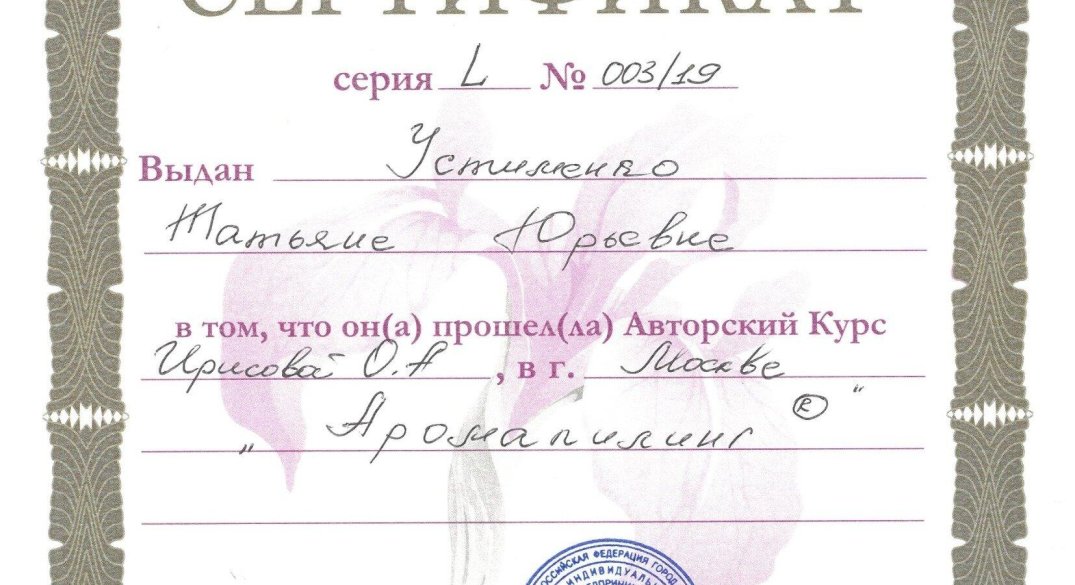 СЕРТИФИКАТ
серия L № 003/19
Выдан Устименко
Татьяне Юрьевне
в том, что он(а) прошел(ла) Авторский Курс
Ирисовой О.А , в г. Москве
„ Аромапилинг ® “
РОССИЙСКАЯ ФЕДЕРАЦИЯ ГОРОД